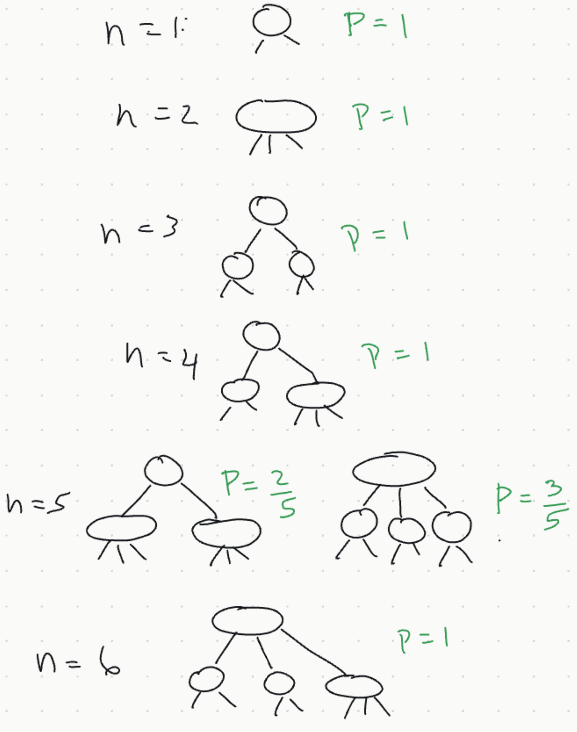 n = 1: P = 1
n = 2 P = 1
n = 3 P = 1
n = 4 P = 1
n = 5 P = 2/5 P = 3/5
n = 6 P = 1